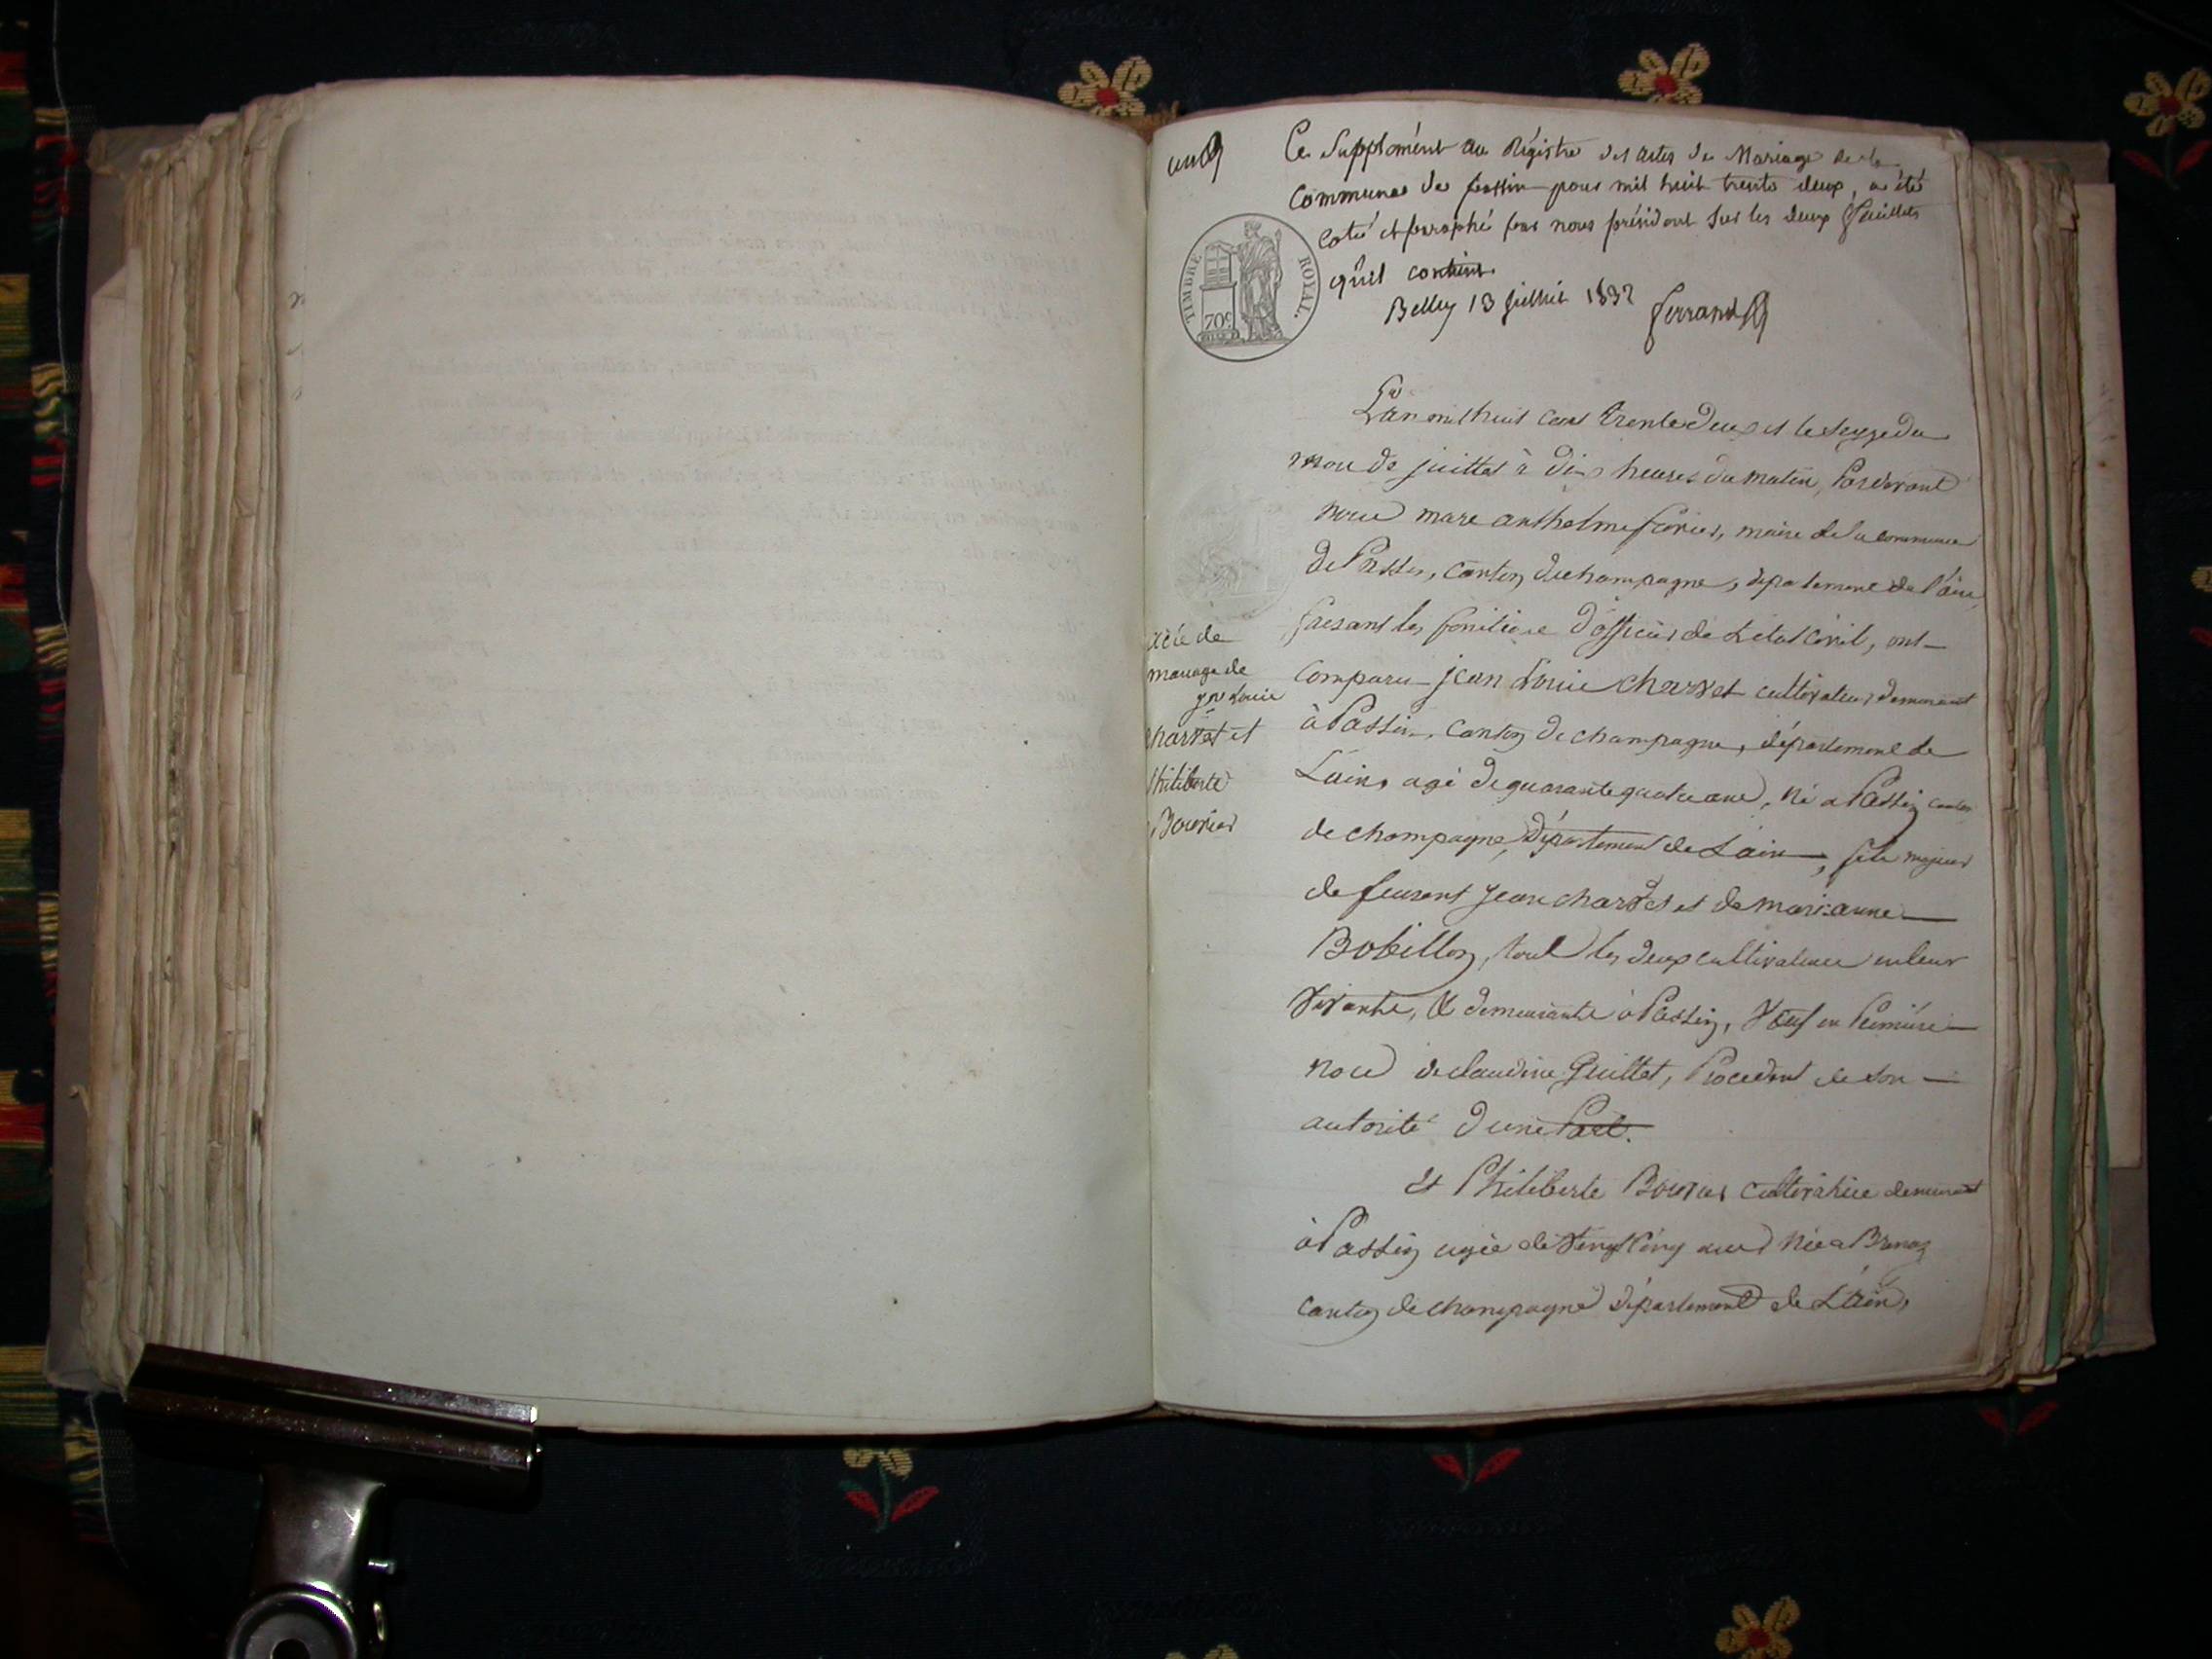 Ce Supplément au Régistre des actes de Mariage de la
Commune de passin pour mil huit trente deux, a été
coté et paraphé par nous président sur les deux feuillets
qu'il contient.
Belley 13 juillet 1832 ferrand
TIMBRE ROYAL.
70c
L'an mil huit cent trente deux et le seize du
mois de juillet à dix heures du matin, Pardevant
nous marc anthelme maire de la commune
de Passin, canton de champagne, département de l'ain,
faisant les fonctions d'officier de L'état Civil, ont
comparu jean Louis charvet cultivateur demeurant
à Passin, canton de champagne, département de
L'ain, agé de quarante quatre ans, né a Passin canton
de champagne, Département de L'ain, fils majeur
de feu jean charvet et de marianne
Bobillon, tout les deux cultivateurs en leur
vivants, & demeurants à Passin, Veuf en Premiere
noce de claudine Guillet, Procedant de son
autorité d'une Part.
Et Philiberte Bouvier cultivatrice demeurant
à Passin agée de vingt cinq ans née a Brenaz
canton de champagne département de L'ain,
acte de
mariage de
jn Louis
charvet et
Philiberte
Bouvier